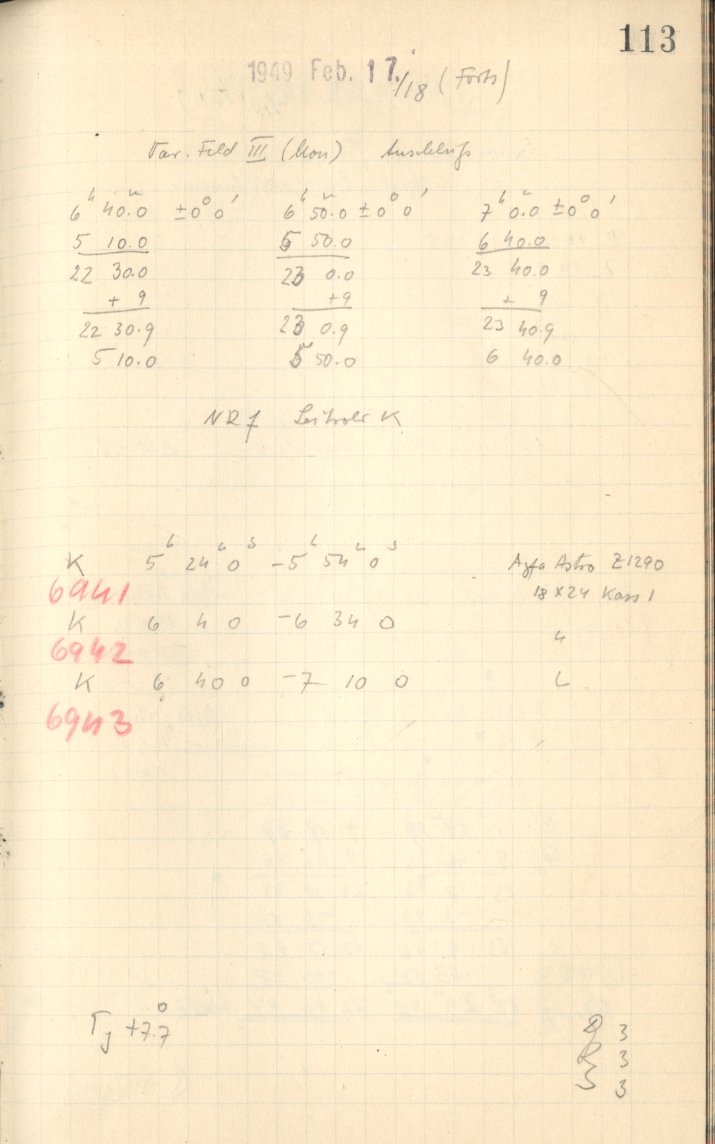 113
1949 Feb. 17./18 (Forts)
Var. Feld III (Mon) Anschluß
6ʰ 40.0ᵐ ±0° 0' 6ʰ 50.0ᵐ ±0° 0' 7ʰ 0.0ᵐ ±0° 0'
5 10.0 5 50.0 6 40.0
22 30.0 23 0.0 23 40.0
+ 9 +9 + 9
22 30.9 23 0.9 23 40.9
5 10.0 5 50.0 6 40.0
NR f K
K 5ʰ 24ᵐ 0ˢ – 5ʰ 54ᵐ 0ˢ Agfa Astro Z1290
6941 18 x 24 Kass 1
K 6 4 0 – 6 34 0 "
6942
K 6 40 0 – 7 10 0 "
6943
T_J +7.7° 3
R 3
S 3